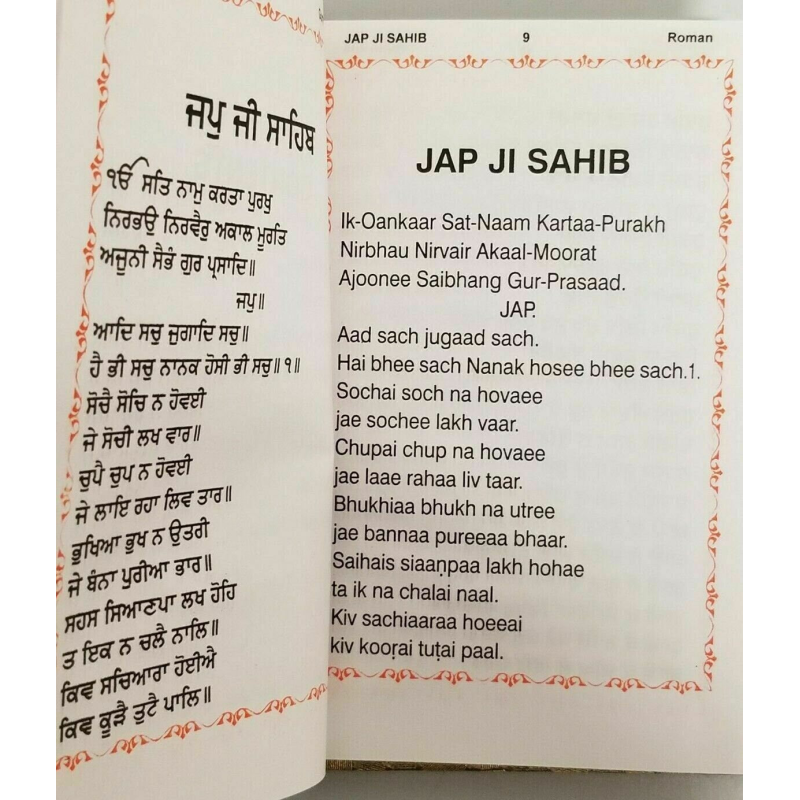 ਜਪੁ ਜੀ ਸਾਹਿਬ
ੴ ਸਤਿ ਨਾਮੁ ਕਰਤਾ ਪੁਰਖੁ
ਨਿਰਭਉ ਨਿਰਵੈਰੁ ਅਕਾਲ ਮੂਰਤਿ
ਅਜੂਨੀ ਸੈਭੰ ਗੁਰ ਪ੍ਰਸਾਦਿ॥
ਜਪੁ॥
ਆਦਿ ਸਚੁ ਜੁਗਾਦਿ ਸਚੁ॥
ਹੈ ਭੀ ਸਚੁ ਨਾਨਕ ਹੋਸੀ ਭੀ ਸਚੁ॥੧॥
ਸੋਚੈ ਸੋਚਿ ਨ ਹੋਵਈ
ਜੇ ਸੋਚੀ ਲਖ ਵਾਰ॥
ਚੁਪੈ ਚੁਪ ਨ ਹੋਵਈ
ਜੇ ਲਾਇ ਰਹਾ ਲਿਵ ਤਾਰ॥
ਭੁਖਿਆ ਭੁਖ ਨ ਉਤਰੀ
ਜੇ ਬੰਨਾ ਪੁਰੀਆ ਭਾਰ॥
ਸਹਸ ਸਿਆਣਪਾ ਲਖ ਹੋਹਿ
ਤ ਇਕ ਨ ਚਲੈ ਨਾਲਿ॥
ਕਿਵ ਸਚਿਆਰਾ ਹੋਈਐ
ਕਿਵ ਕੂੜੈ ਤੁਟੈ ਪਾਲਿ॥
JAP JI SAHIB 9 Roman
JAP JI SAHIB
Ik-Oankaar Sat-Naam Kartaa-Purakh
Nirbhau Nirvair Akaal-Moorat
Ajoonee Saibhang Gur-Prasaad.
JAP.
Aad sach jugaad sach.
Hai bhee sach Nanak hosee bhee sach.1.
Sochai soch na hovaee
jae sochee lakh vaar.
Chupai chup na hovaee
jae laae rahaa liv taar.
Bhukhiaa bhukh na utree
jae bannaa pureeaa bhaar.
Saihais siaaṇpaa lakh hohae
ta ik na chalai naal.
Kiv sachiaaraa hoeeai
kiv kooṛai tuṭai paal.